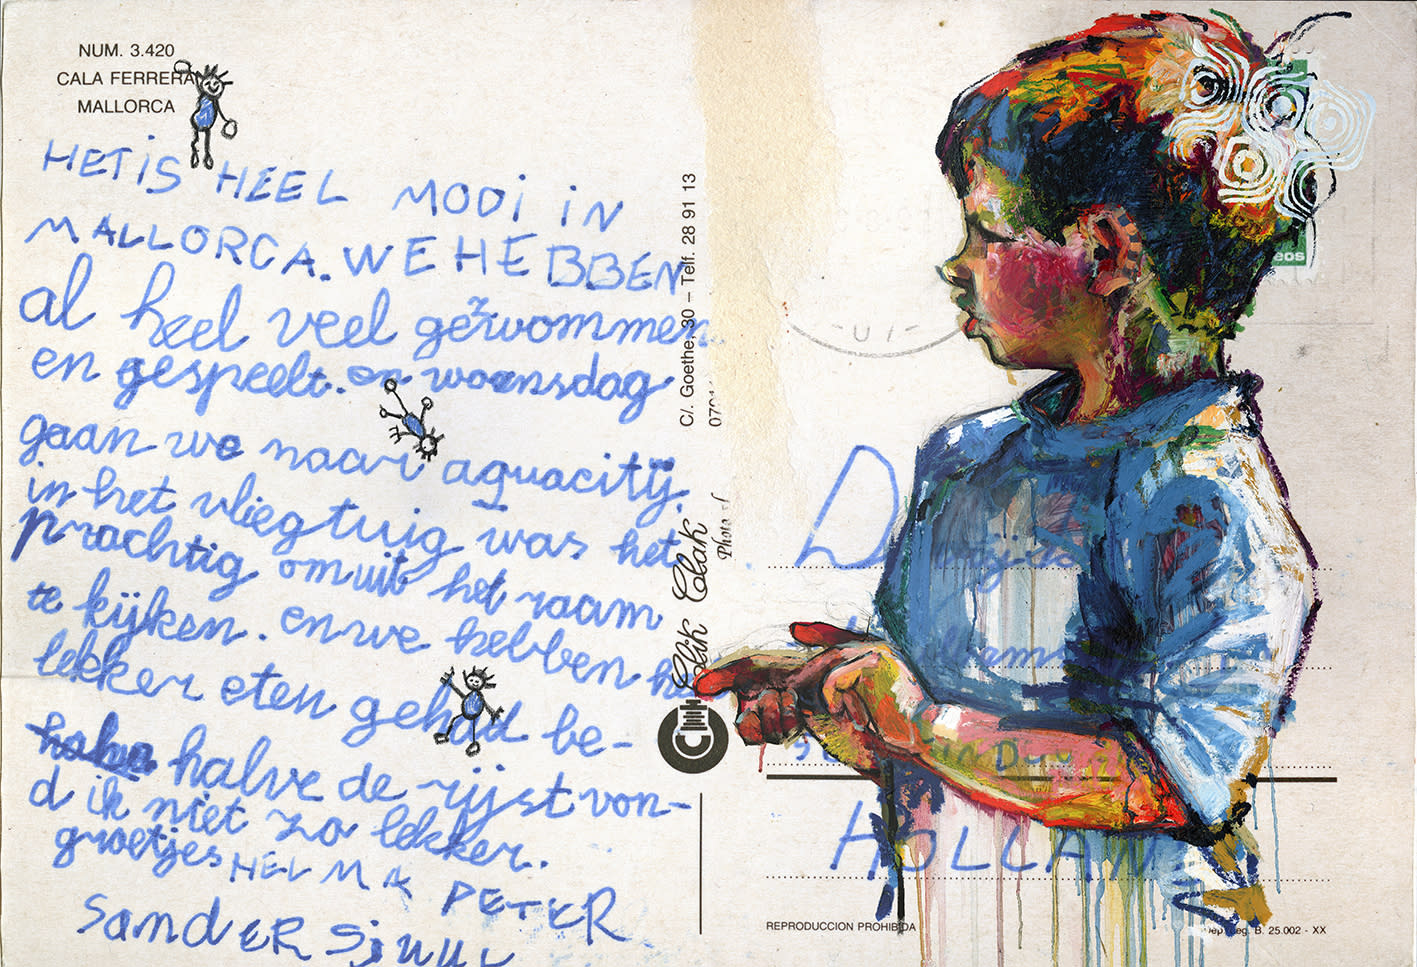 NUM. 3.420
CALA FERRERA
MALLORCA
HET IS HEEL MOOI IN
MALLORCA. WE HEBBEN
al heel veel gezwommen
en gespeelt. en woensdag
gaan we naar aquacitÿ.
in het vliegtuig was het
prachtig om uit het raam
te kÿken. en we hebben
lekker eten gehad be-
halve de rijst von-
d ik niet zo lekker.
groetjes HELMA PETER
SANDER
C/. Goethe, 30 – Telf. 28 91 13
Clik Clak
Photo
D
HOLLAN
REPRODUCCION PROHIBIDA
Dep. Leg. B. 25.002 - XX
eos